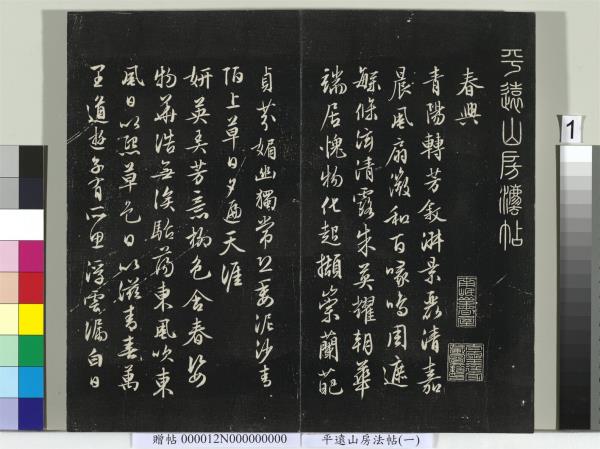 平遠山房法帖
春興
青陽轉芳敘淋景氣清嘉
晨風扇微和百喙鳴周遮
條清露朱英耀朝華
端居愧物化起擷叢蘭葩
貞芬媚幽獨常恐委泥沙青
陌上草日夕遍天涯
妍英美芳意楊色含春姿
物華浩無涘駘蕩東風吹東
風日以熙草色日以滋青春萬
里道遊子有所思浮雲漏白日
1
贈帖 000012N000000000
平遠山房法帖(一)